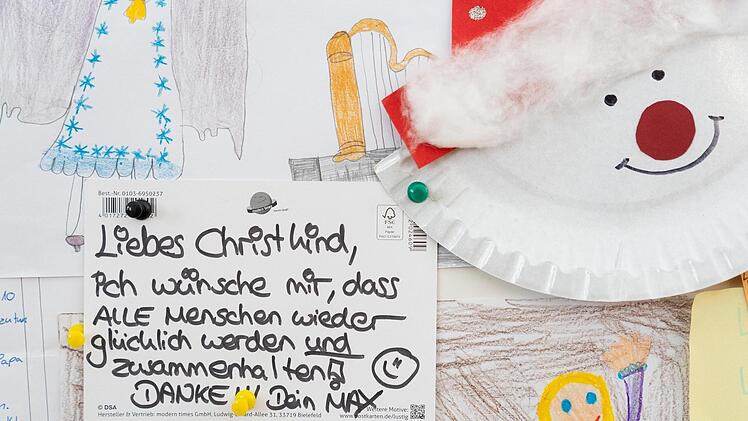 Best.-Nr. 0103-6950237
Liebes Christkind,
ich wünsche mir, dass
ALLE Menschen wieder
glücklich werden und
zuwammenhalten!
DANKE!!! Dein MAX
FSC
© DSA
Weitere Motive:
Hersteller & Vertrieb: modern times GmbH, Ludwig-Erhard-Allee 31, 33719 Bielefeld
10
Papa